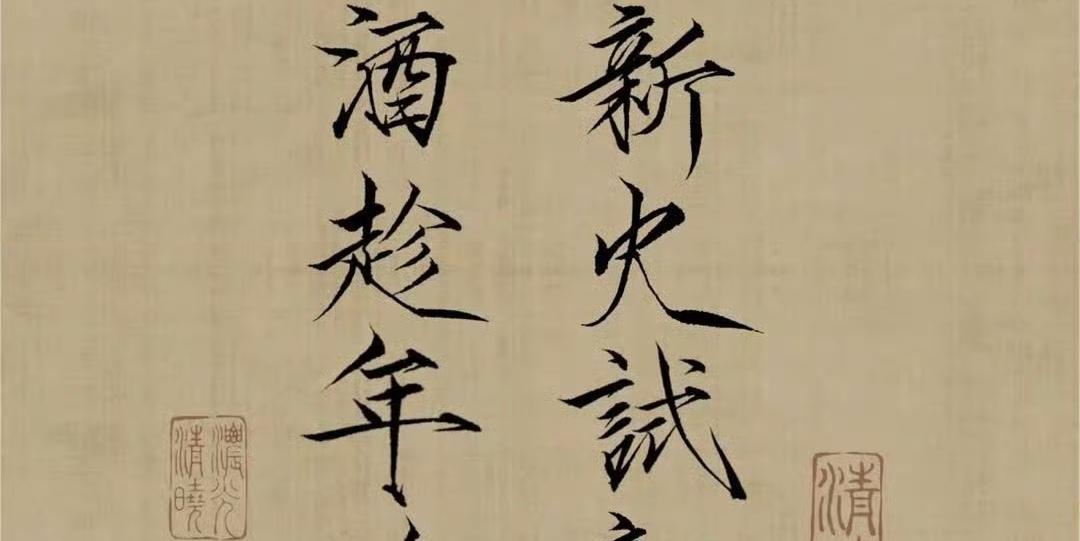 新火試
酒趁年
清
濃淡清曉